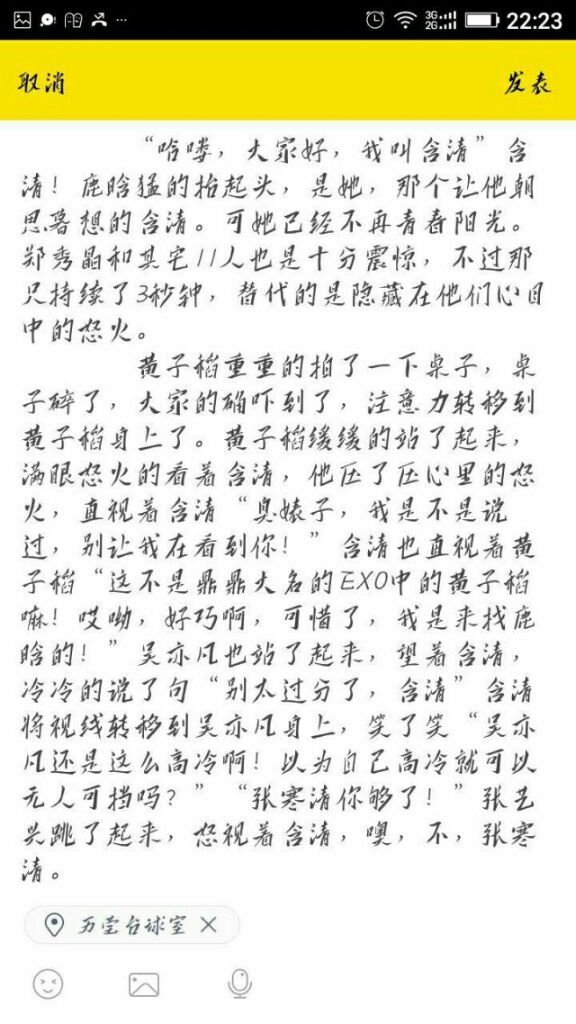 3G
2G
22:23
取消
发表
“哈喽，大家好，我叫含清”含
清！鹿晗猛的抬起头，是她，那个让他朝
思暮想的含清。可她已经不再青春阳光。
郑秀晶和其宅11人也是十分震惊，不过那
只持续了3秒钟，替代的是隐藏在他们心目
中的怒火。
黄子稻重重的拍了一下桌子，桌
子碎了，大家的确吓到了，注意力转移到
黄子稻身上了。黄子稻缓缓的站了起来，
满眼怒火的看着含清，他压了压心里的怒
火，直视着含清“臭婊子，我是不是说
过，别让我在看到你！”含清也直视着黄
子稻“这不是鼎鼎大名的EXO中的黄子稻
嘛！哎呦，好巧啊，可惜了，我是来找鹿
晗的！”吴亦凡也站了起来，望着含清，
冷冷的说了句“别太过分了，含清”含清
将视线转移到吴亦凡身上，笑了笑“吴亦
凡还是这么高冷啊！以为自己高冷就可以
无人可挡吗？”“张寒清你够了！”张艺
兴跳了起来，怒视着含清，噢，不，张寒
清。
万堂台球室